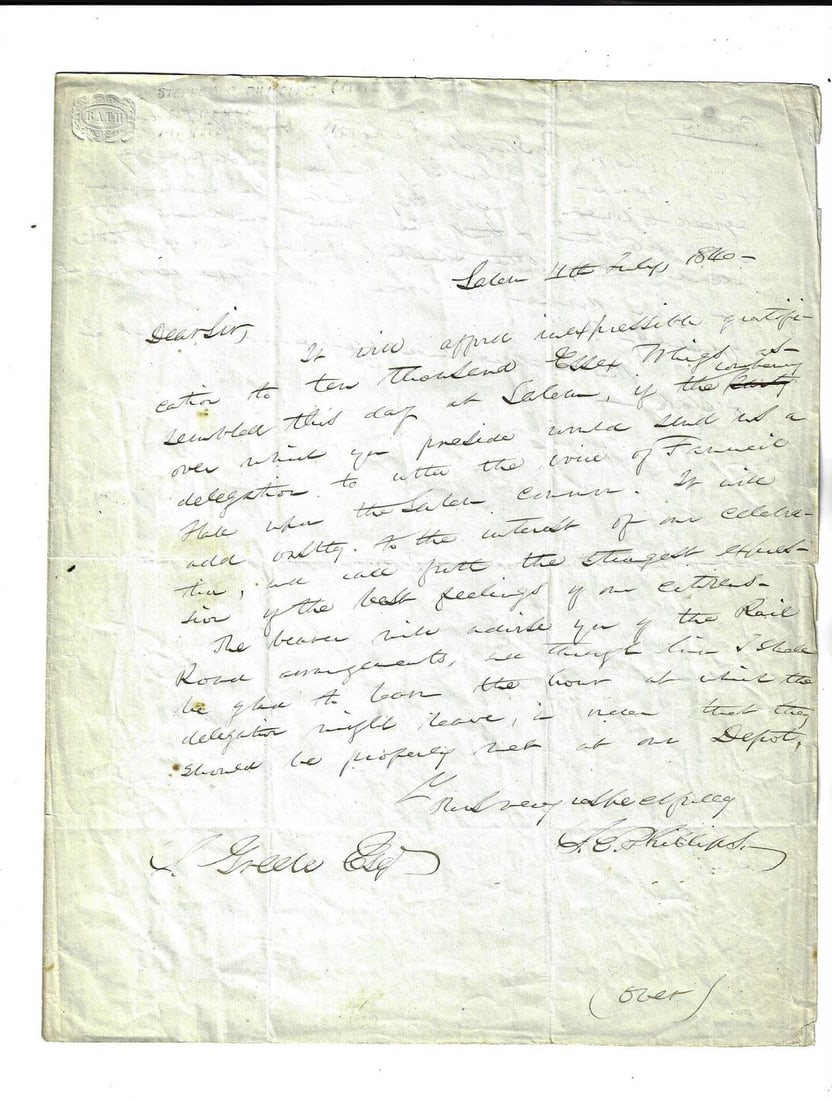 BATH
Salem 4th July, 1840 -
Dear Sir,
It will afford inexpressible gratifi-
cation to ten thousand Essex Whigs as-
sembled this day at Salem, if the company
over which you preside would send us a
delegation to utter the voice of Faneuil
Hall upon the Salem common. It will
add vastly to the interest of our celebra-
tion, and call forth the strongest expres-
sion of the best feelings of our citizens -
The bearer will advise you of the Rail
Road arrangements, and through him I shall
be glad to learn the hour at which the
delegation might leave, in order that they
should be properly met at our Depot,
Yours very respectfully
S. C. Phillips.
Greele Esq
(over)